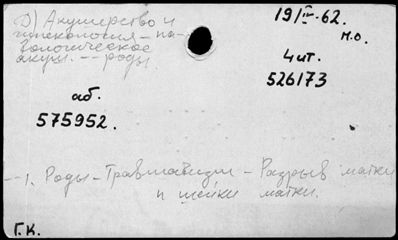 Д) Акушерство и
гинекология — па-
тологическое
акуш. -- роды
19 IV-62.
м.о.
4ит.
526173
аб.
575952.
--1. Роды-Травматизм - Разрыв матки
и шейки матки.
Г.К.